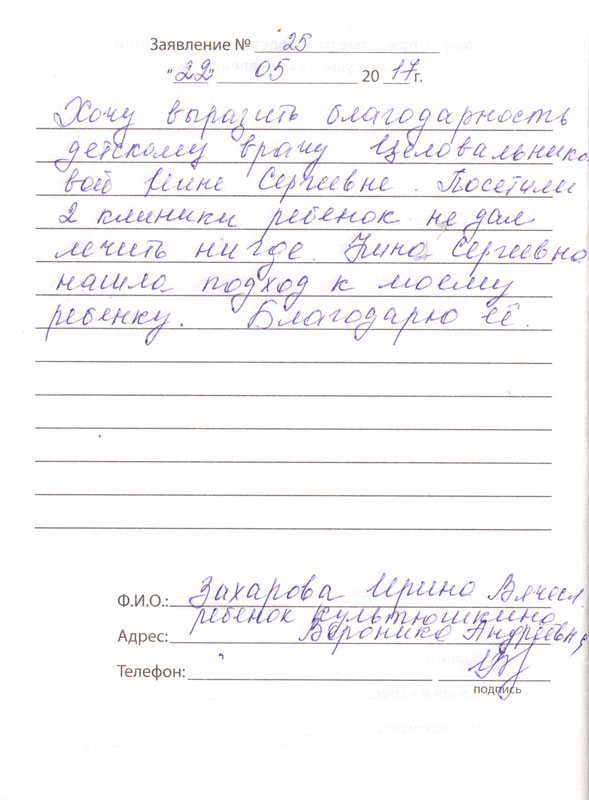 Заявление № 25
"22" 05 2017г.
Хочу выразить благодарность
детскому врачу Целовальнико
вой Нине Сергеевне. Посетили
2 клиники ребенок не дал
лечить нигде. Нина Сергеевна
нашла подход к моему
ребенку. Благодарю её.
Ф.И.О.: Захарова Ирина Вячесл.
ребенок Культюшкина
Адрес: Вероника Андреевна
Телефон:
подпись